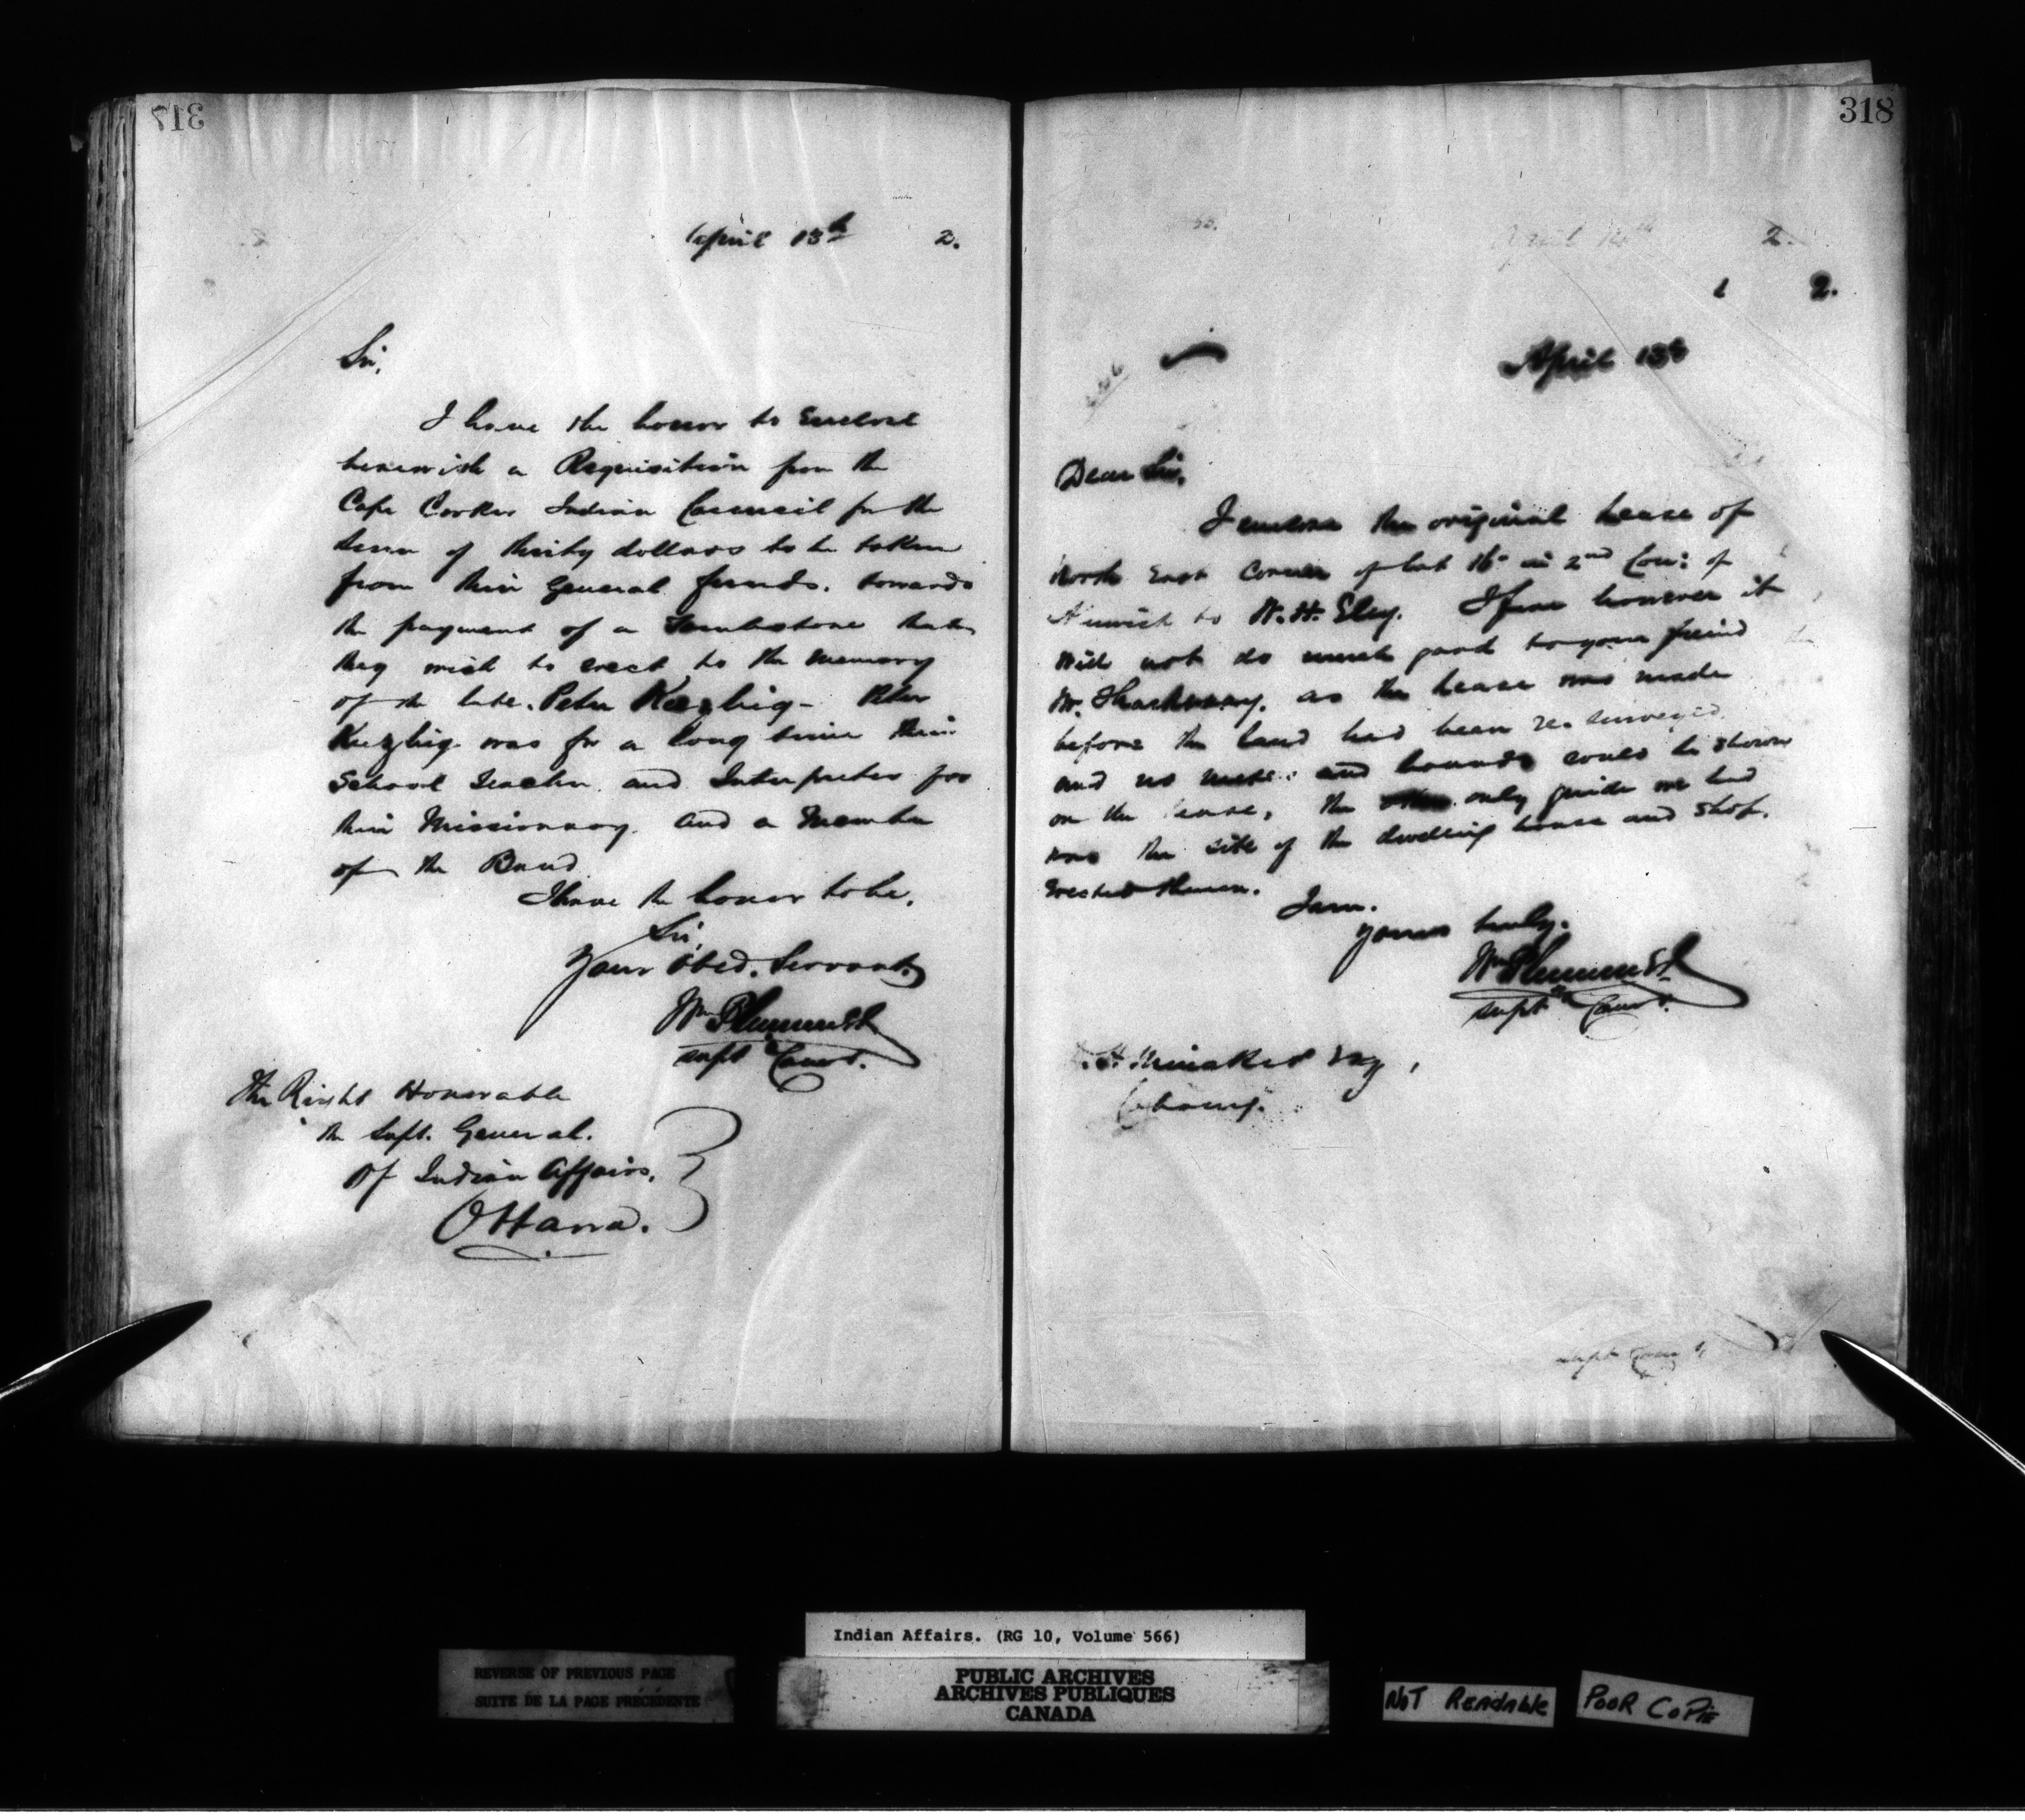 317
April 13th 2.
Sir,
I have the honor to Enclose
herewith a Requisition from the
Cape Croker Indian Council for the
Sum of thirty dollars to be taken
from their General funds. towards
the payment of a Tombstone that
they wish to erect to the memory
of the late. Peter Kezhig - Peter
Kezhig was for a long time their
School Teacher. and Interpreter for
their Missionary. and a Member
of the Band
I have the honor to be,
Sir,
Your Obed. Servant
Wm Plummer
Supt & Comr.
The Right Honorable
the Supt. General.
Of Indian Affairs,
Ottawa.
318
April 14th 2.
1 2.
April 13th
Dear Sir,
I enclose the original lease of
North East Corner of lot 16 in 2nd Con: of
Alnwick to W. H. Eley. I fear however it
will not do much good to your friend
Mr. as the lease was made
before the land had been re-surveyed
and no metes and bounds could be shown
on the lease, the only guide we had
was the site of the dwelling house and shop.
Erected thereon.
I am.
Yours truly.
Wm Plummer
Supt & Comr.
Esq,
Cobourg.
Supt Comr.
Indian Affairs. (RG 10, Volume 566)
REVERSE OF PREVIOUS PAGE
SUITE DE LA PAGE PRÉCÉDENTE
PUBLIC ARCHIVES
ARCHIVES PUBLIQUES
CANADA
NOT READABLE
POOR COPIE